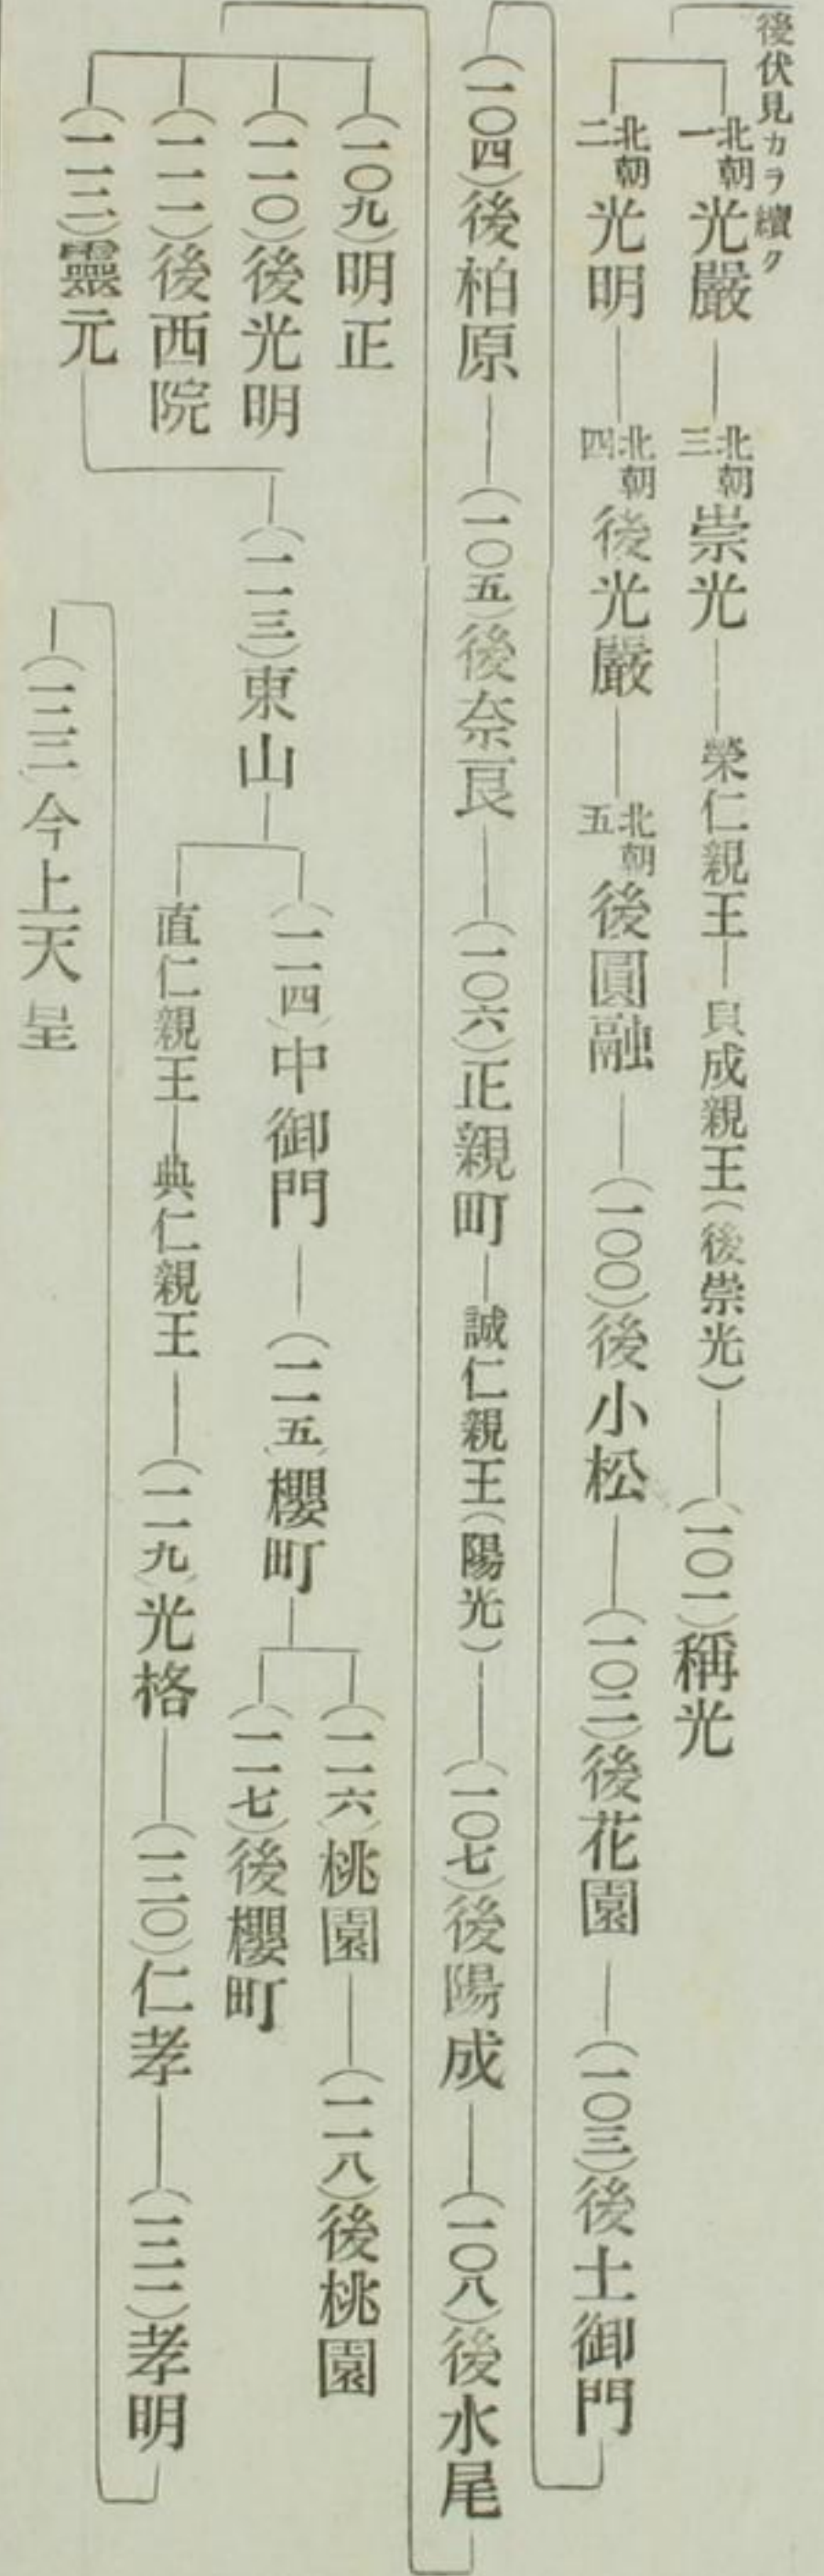 後伏見カラ續ク
北朝一 光嚴 北朝三 崇光 榮仁親王 貞成親王(後崇光) (一〇一)稱光
北朝二 光明 北朝四 後光嚴 北朝五 後圓融 (一〇〇)後小松 (一〇二)後花園 (一〇三)後土御門
(一〇四)後柏原 (一〇五)後奈良 (一〇六)正親町 誠仁親王(陽光) (一〇七)後陽成 (一〇八)後水尾
(一〇九)明正
(一一〇)後光明
(一一一)後西院
(一一二)靈元
(一一三)東山
(一一四)中御門 (一一五)櫻町
(一一六)桃園 (一一八)後桃園
(一一七)後櫻町
直仁親王 典仁親王 (一一九)光格 (一二〇)仁孝 (一二一)孝明
(一二二)今上天皇